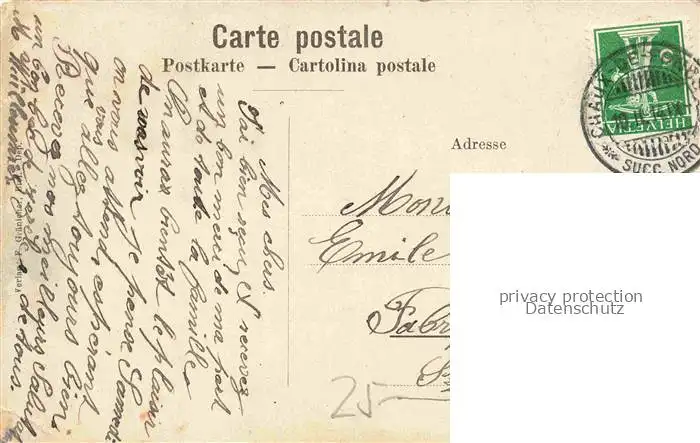 Carte postale
Postkarte — Cartolina postale
Adresse
HELVETIA
CHAUX-DE-FONDS
SUCC. NORD
Mes chers.
J'ai bien reçu, et recevez
un bon merci de ma part
et de toute la famille
J'aurais bientôt le plaisir
de revoir je pense Samedi
on vous attend, espérant
que vous
allez toujours bien
Recevez mes meilleurs Saluts
un
de tous
Mons
Emile
Fabr
25
privacy protection
Datenschutz